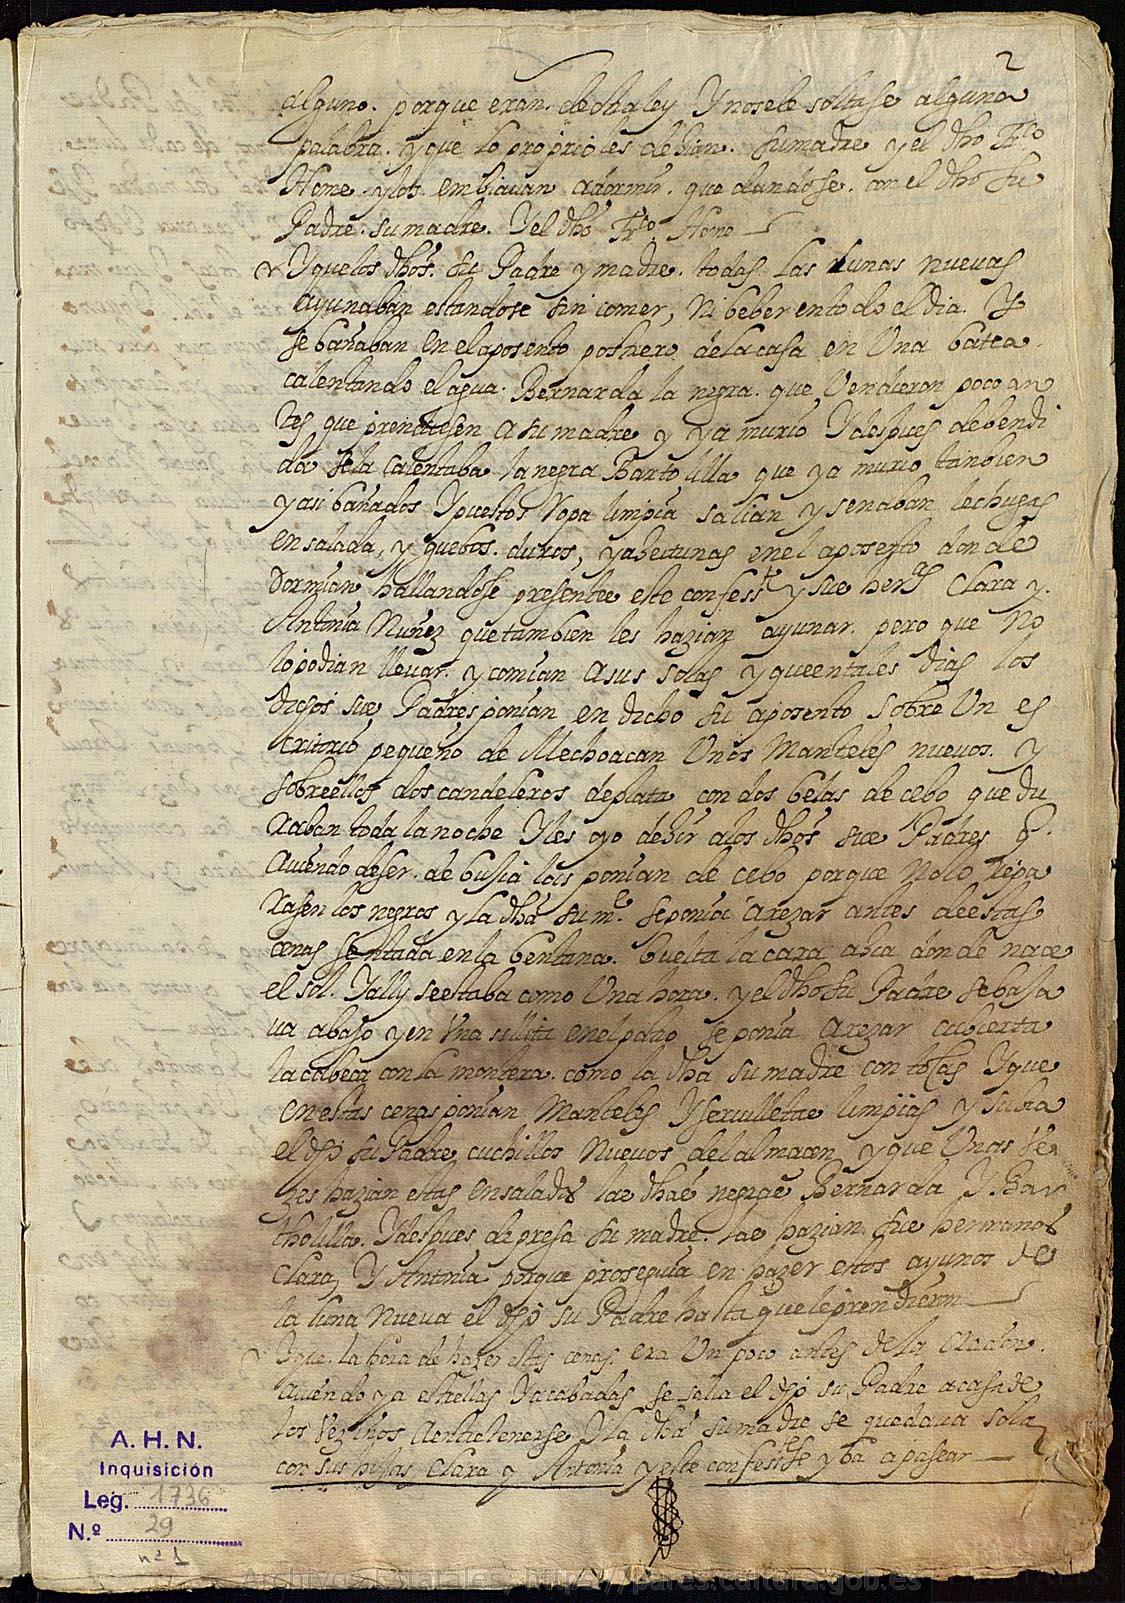 2
alguno. porque eran. de otra ley Y no se le soltase alguna
palabra. y que lo proprio les desian. su madre y el dho Frco
Home. y los embiauan a dormir. quedandose. con el dho su
Padre. su madre. Y el dho Frco Home
Y que los dhos. su Padre y madre. todas las lunas nuevas
ayunaban estandose sin comer, ni beber en todo el dia. Y
se bañaban en el aposento postrero de la casa en Una batea.
calentando el agua. Bernarda la negra. que Vendieron poco an
tes que prendiesen a su madre y ya murio Y despues de bendi
da se la calentaba la negra Bartolilla que ya murio tanbien
y asi bañados Y puestos Ropa limpia salian y senaban lechugas
ensalada, y guebos. duros, y aseitunas en el aposento donde
Dormian hallandose presente este confess.te y sus herns Clara y.
Antonia Nuñez que tambien les hazian ayunar. pero que no
lo podian lleuar. y comian a sus solas y que en tales dias los
dichos sus Padres ponian en dicho su aposento sobre Un es
critorio pequeño de Mechoacan Unos Manteles nuevos. y
sobre ellos dos candeleros de plata con dos belas de cebo que du
raban toda la noche Y les oyo desir a los dhos sus Padres q.
auiendo de ser. de busia las ponian de cebo porque no lo repa
rasen los negros y la dha su m.e se ponia a rezar antes de estas
cenas sentada en la bentana. buelta la cara asia donde nace
el sol. Y alli se estaba como Una hora. y el dho su Padre se baja
ua abajo y en Una sillita en el patio se ponia a rezar cubierta
la cabeca con la montera. como la dha su madre con tocas Y que
en estas cenas ponian Manteles Y seruilletas limpias y sacaba
el dho su Padre cuchillos nuevos del almacen y que Unas be
zes hazian estas ensaladas las dhas negras Bernarda Y Bar
tholilla. Y despues de presa su madre. las hazian sus hermanas
Clara, Y Antonia porque proseguia en hazer estos ayunos de
la luna nueva el dho su Padre hasta que le prendieron
Y que la hora de hazer estas cenas. era Un poco antes de la oracion.
auiendo ya estrellas Y acabadas se salia el dho su Padre a casa de
los Vezinos a entretenerse Y la dha su madre se quedaua sola
con sus hijas Clara y Antonia y este confess.te se yba a pasear
A. H. N.
Inquisición
Leg. 1736
N.º 29
nº 1
Archivos Estatales, http://pares.cultura.gob.es